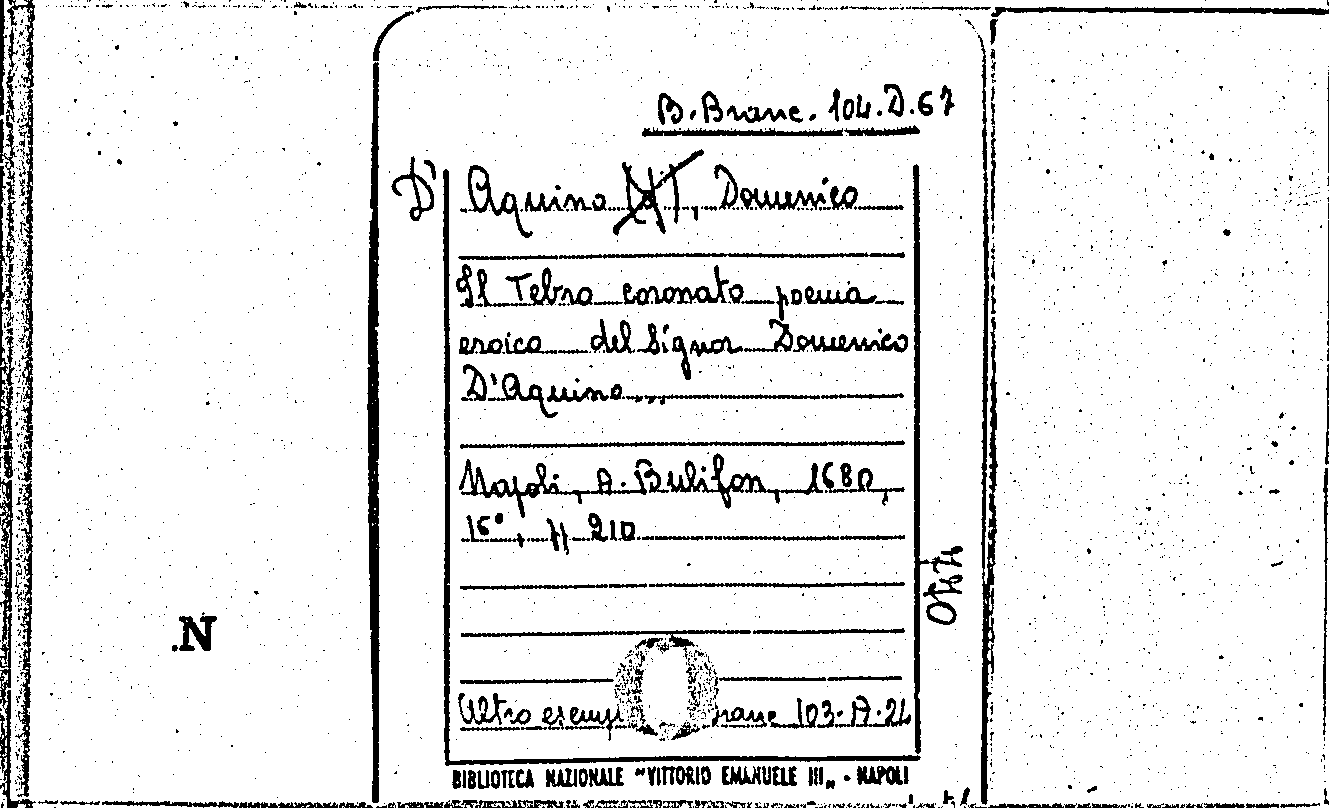 B. Branc. 104. D. 67
D' Aquino, Domenico
Il Tebro coronato poema
eroico del Signor Domenico
D'Aquino...
Napoli, A. Bulifon, 1680,
16°, pp 210
Altro 103-A-21
BIBLIOTECA NAZIONALE "VITTORIO EMANUELE III„ - NAPOLI
.N